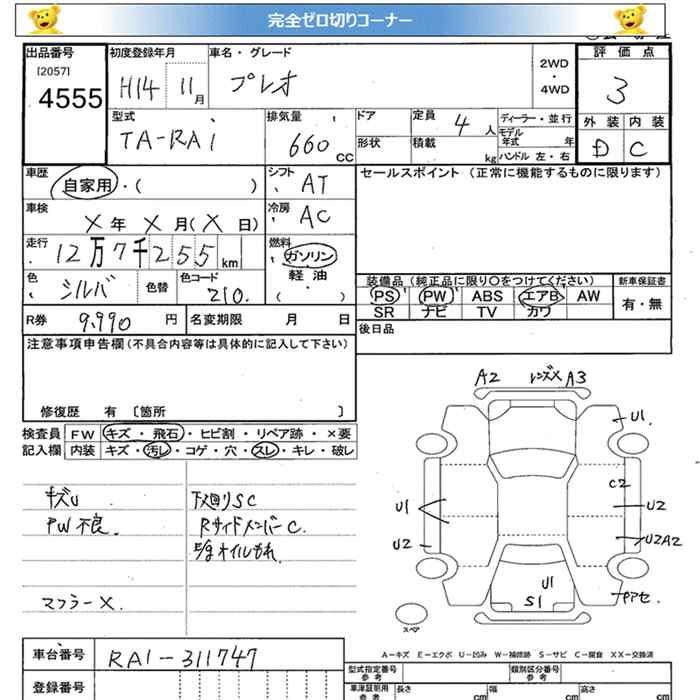 完全ゼロ切りコーナー
出品番号
[2057]
4555
初度登録年月
H14 11月
車名・グレード
プレオ
2WD
・
4WD
評価点
3
外装 内装
D C
型式
TA-RA1
排気量
660 CC
ドア
形状
定員 4 人
積載 kg
ディーラー・並行
モデル年式 年
ハンドル 左・右
車歴
自家用・( )
シフト AT
車検
X年 X月(X日)
冷房 AC
走行
12万7千255km
燃料
ガソリン
軽油
( )
色 シルバ 色替
色コード 210.
R券 9,990円
名変期限 月 日
セールスポイント (正常に機能するものに限ります)
装備品(純正品に限り○をつけてください)
新車保証書
PS PW ABS エアB AW
SR ナビ TV カワ
有・無
後日品
注意事項申告欄(不具合内容等は具体的に記入して下さい)
修復歴 有 〔箇所 〕
検査員 FW キズ・飛石・ヒビ割・リペア跡・×要
記入欄 内装 キズ・汚レ・コゲ・穴・スレ・キレ・破レ
キズU
PW不良.
マフラーX.
下廻りSC
RサイドメンバーC.
オイルもれ
A2 レンズX A3
U1
C2
U1
U2
U2
U2A2
U1
S1
スペア
A-キズ E-エクボ U-凹み W-補修跡 S-サビ C-腐食 XX-交換済
車台番号 RA1-311747
登録番号
型式指定番号
類別区分番号
車庫証明用
参考
長さ cm
幅 cm
高さ cm